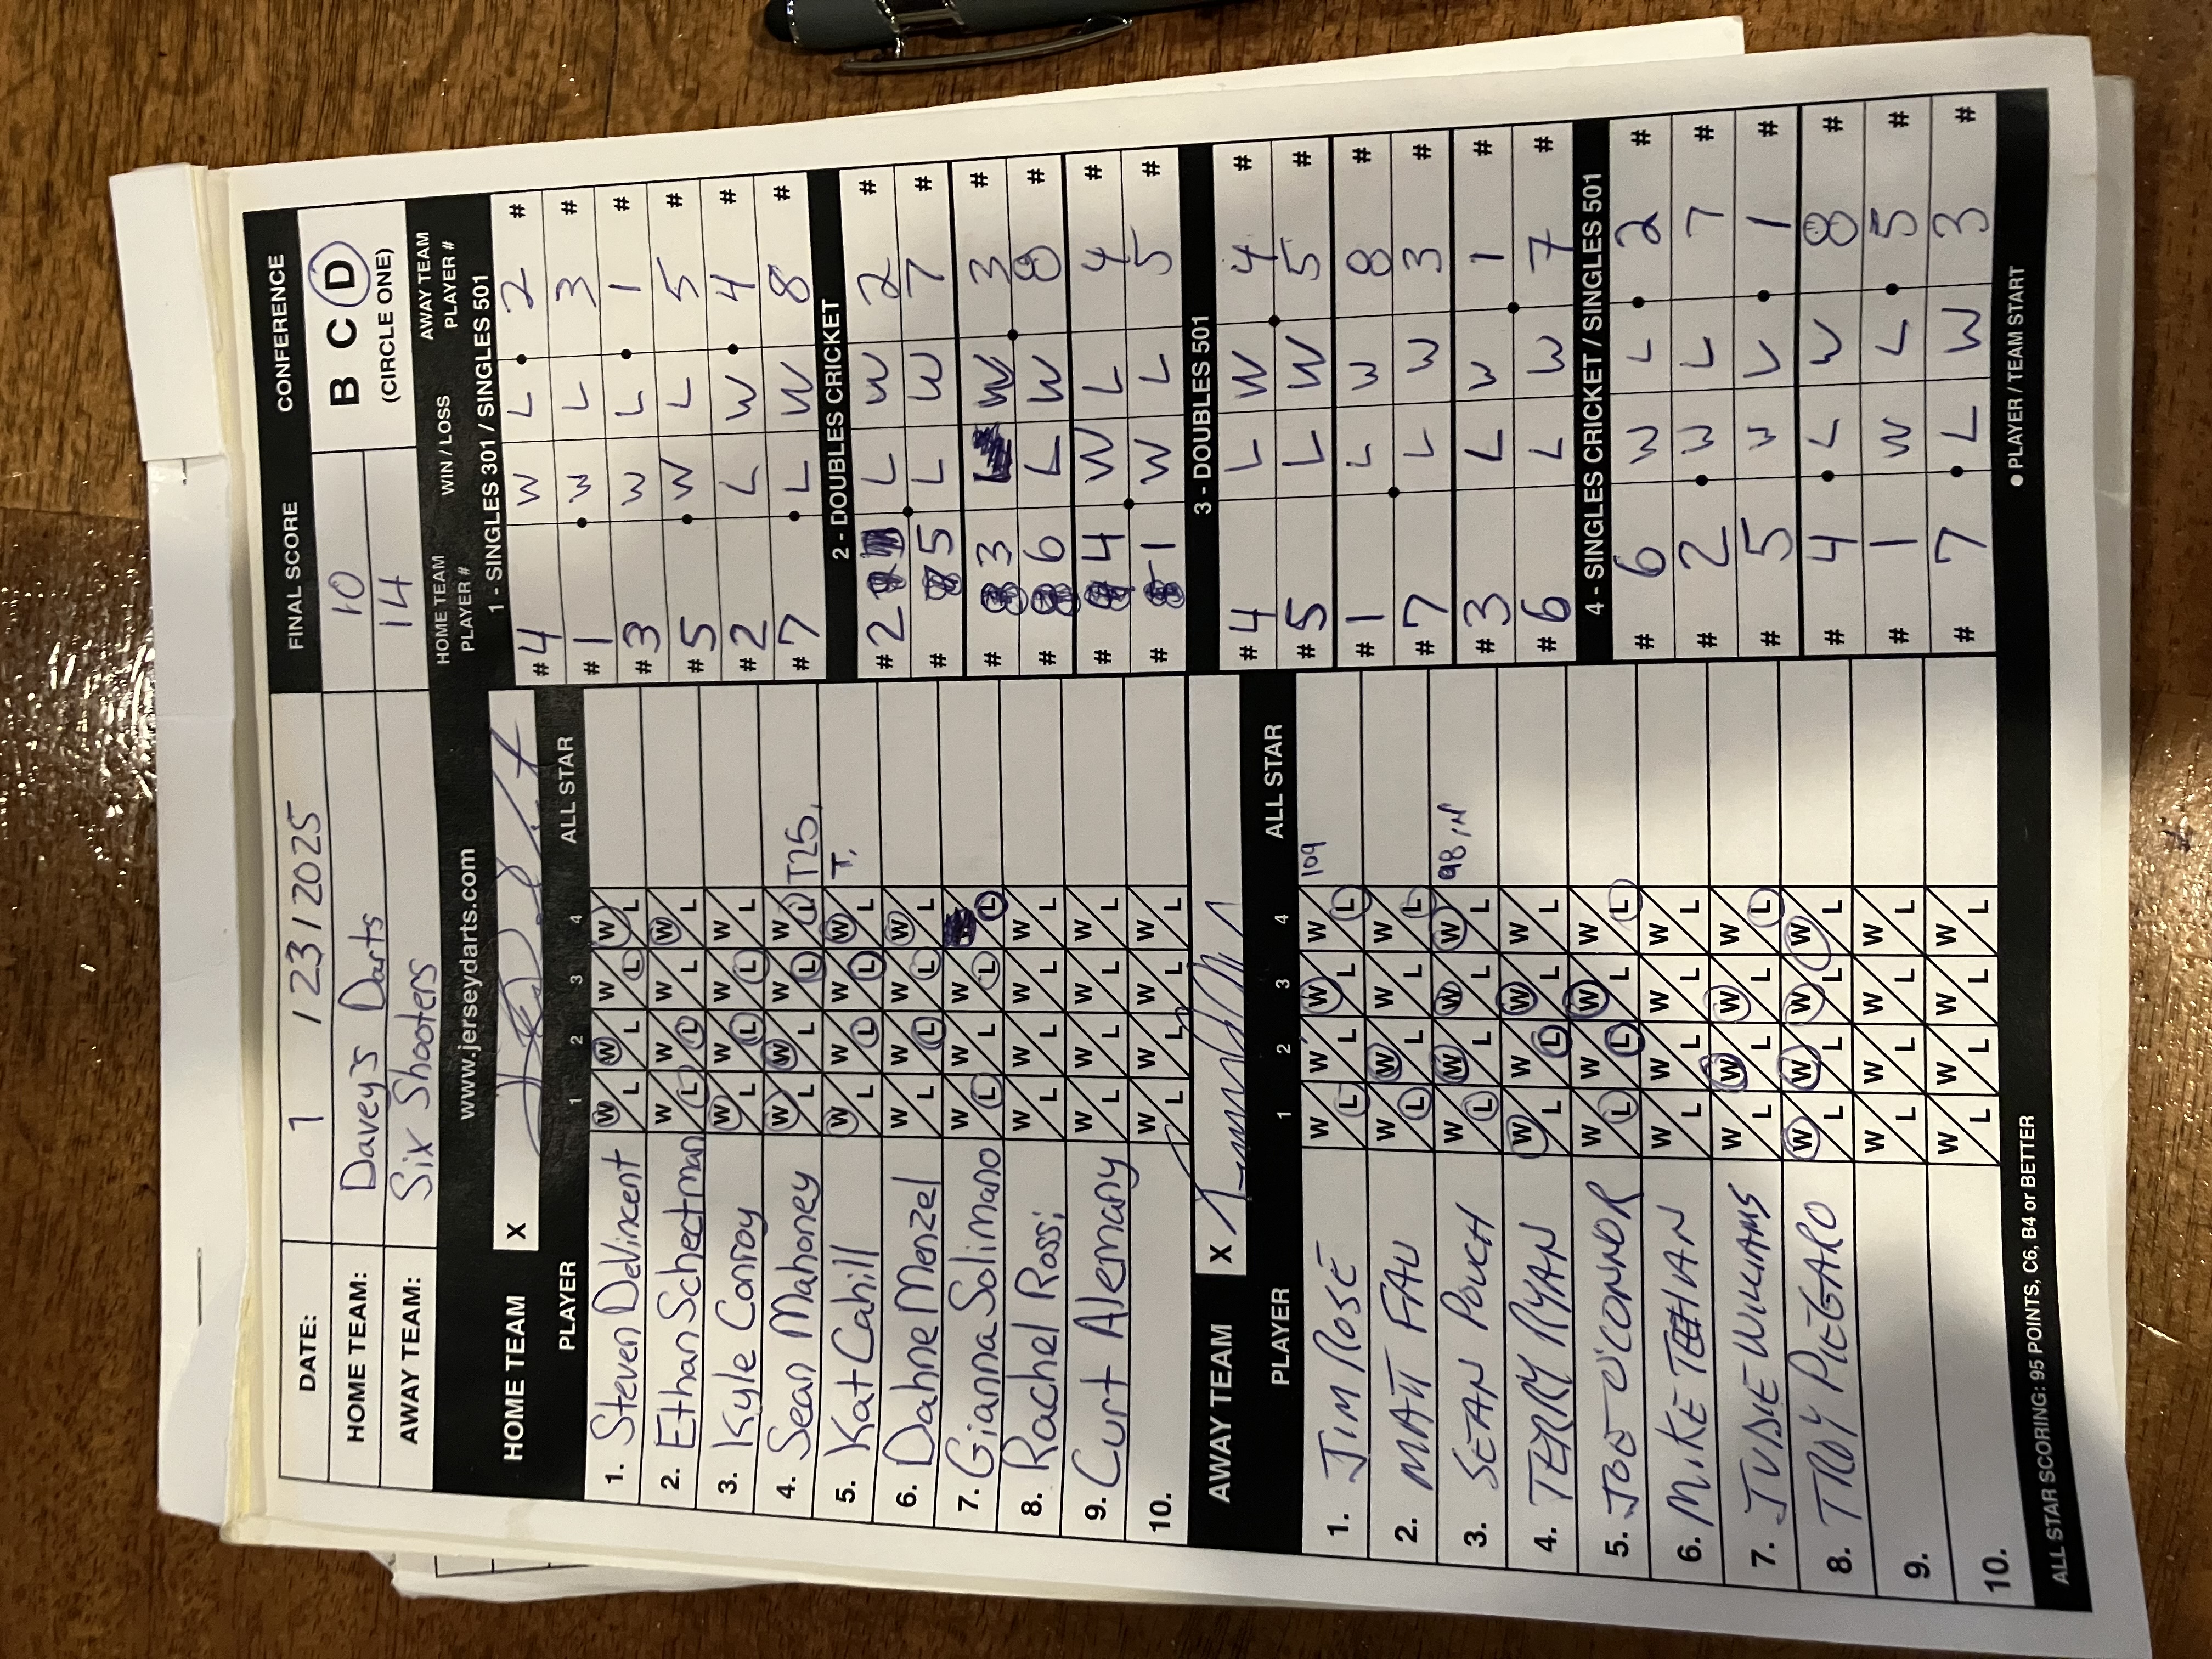 DATE: 1 / 23 / 2025 FINAL SCORE CONFERENCE
HOME TEAM: Davey's Darts 10 B C D
AWAY TEAM: Six Shooters 14 (CIRCLE ONE)
www.jerseydarts.com
HOME TEAM X
PLAYER 1 2 3 4 ALL STAR
1. Steven DeVincent W L W L W L W L
2. Ethan Schectman W L W L W L W L
3. Kyle Conroy W L W L W L W L
4. Sean Mahoney W L W L W L W L T25,
5. Kat Cahill W L W L W L W L T,
6. Dahne Menzel W L W L W L W L
7. Gianna Solimano W L W L W L L
8. Rachel Rossi W L W L W L W L
9. Curt Alemany W L W L W L W L
10. W L W L W L W L
AWAY TEAM X
PLAYER 1 2 3 4 ALL STAR
1. JIM ROSE W L W L W L W L 109
2. MATT FAU W L W L W L W L
3. SEAN POUCH W L W L W L W L 98 IN
4. TERRY RYAN W L W L W L W L
5. JOE O'CONNOR W L W L W L W L
6. MIKE TEEHAN W L W L W L W L
7. JUDE WILLIAMS W L W L W L W L
8. TROY PIEGARO W L W L W L W L
9. W L W L W L W L
10. W L W L W L W L
ALL STAR SCORING: 95 POINTS, C6, B4 or BETTER
HOME TEAM PLAYER # WIN / LOSS AWAY TEAM PLAYER #
1 - SINGLES 301 / SINGLES 501
#4 W L 2 #
#1 W L 3 #
#3 W L 1 #
#5 W L 5 #
#2 L W 4 #
#7 L W 8 #
2 - DOUBLES CRICKET
#2 L W 2 #
# 5 L W 7 #
# 3 W 3 #
# 6 L W 8 #
# 4 W L 4 #
# 1 W L 5 #
3 - DOUBLES 501
#4 L W 4 #
#5 L W 5 #
#1 L W 8 #
#7 L W 3 #
#3 L W 1 #
#6 L W 7 #
4 - SINGLES CRICKET / SINGLES 501
# 6 W L 2 #
# 2 W L 7 #
# 5 W 1 #
# 4 L W 8 #
# 1 W L 5 #
# 7 L W 3 #
● PLAYER / TEAM START